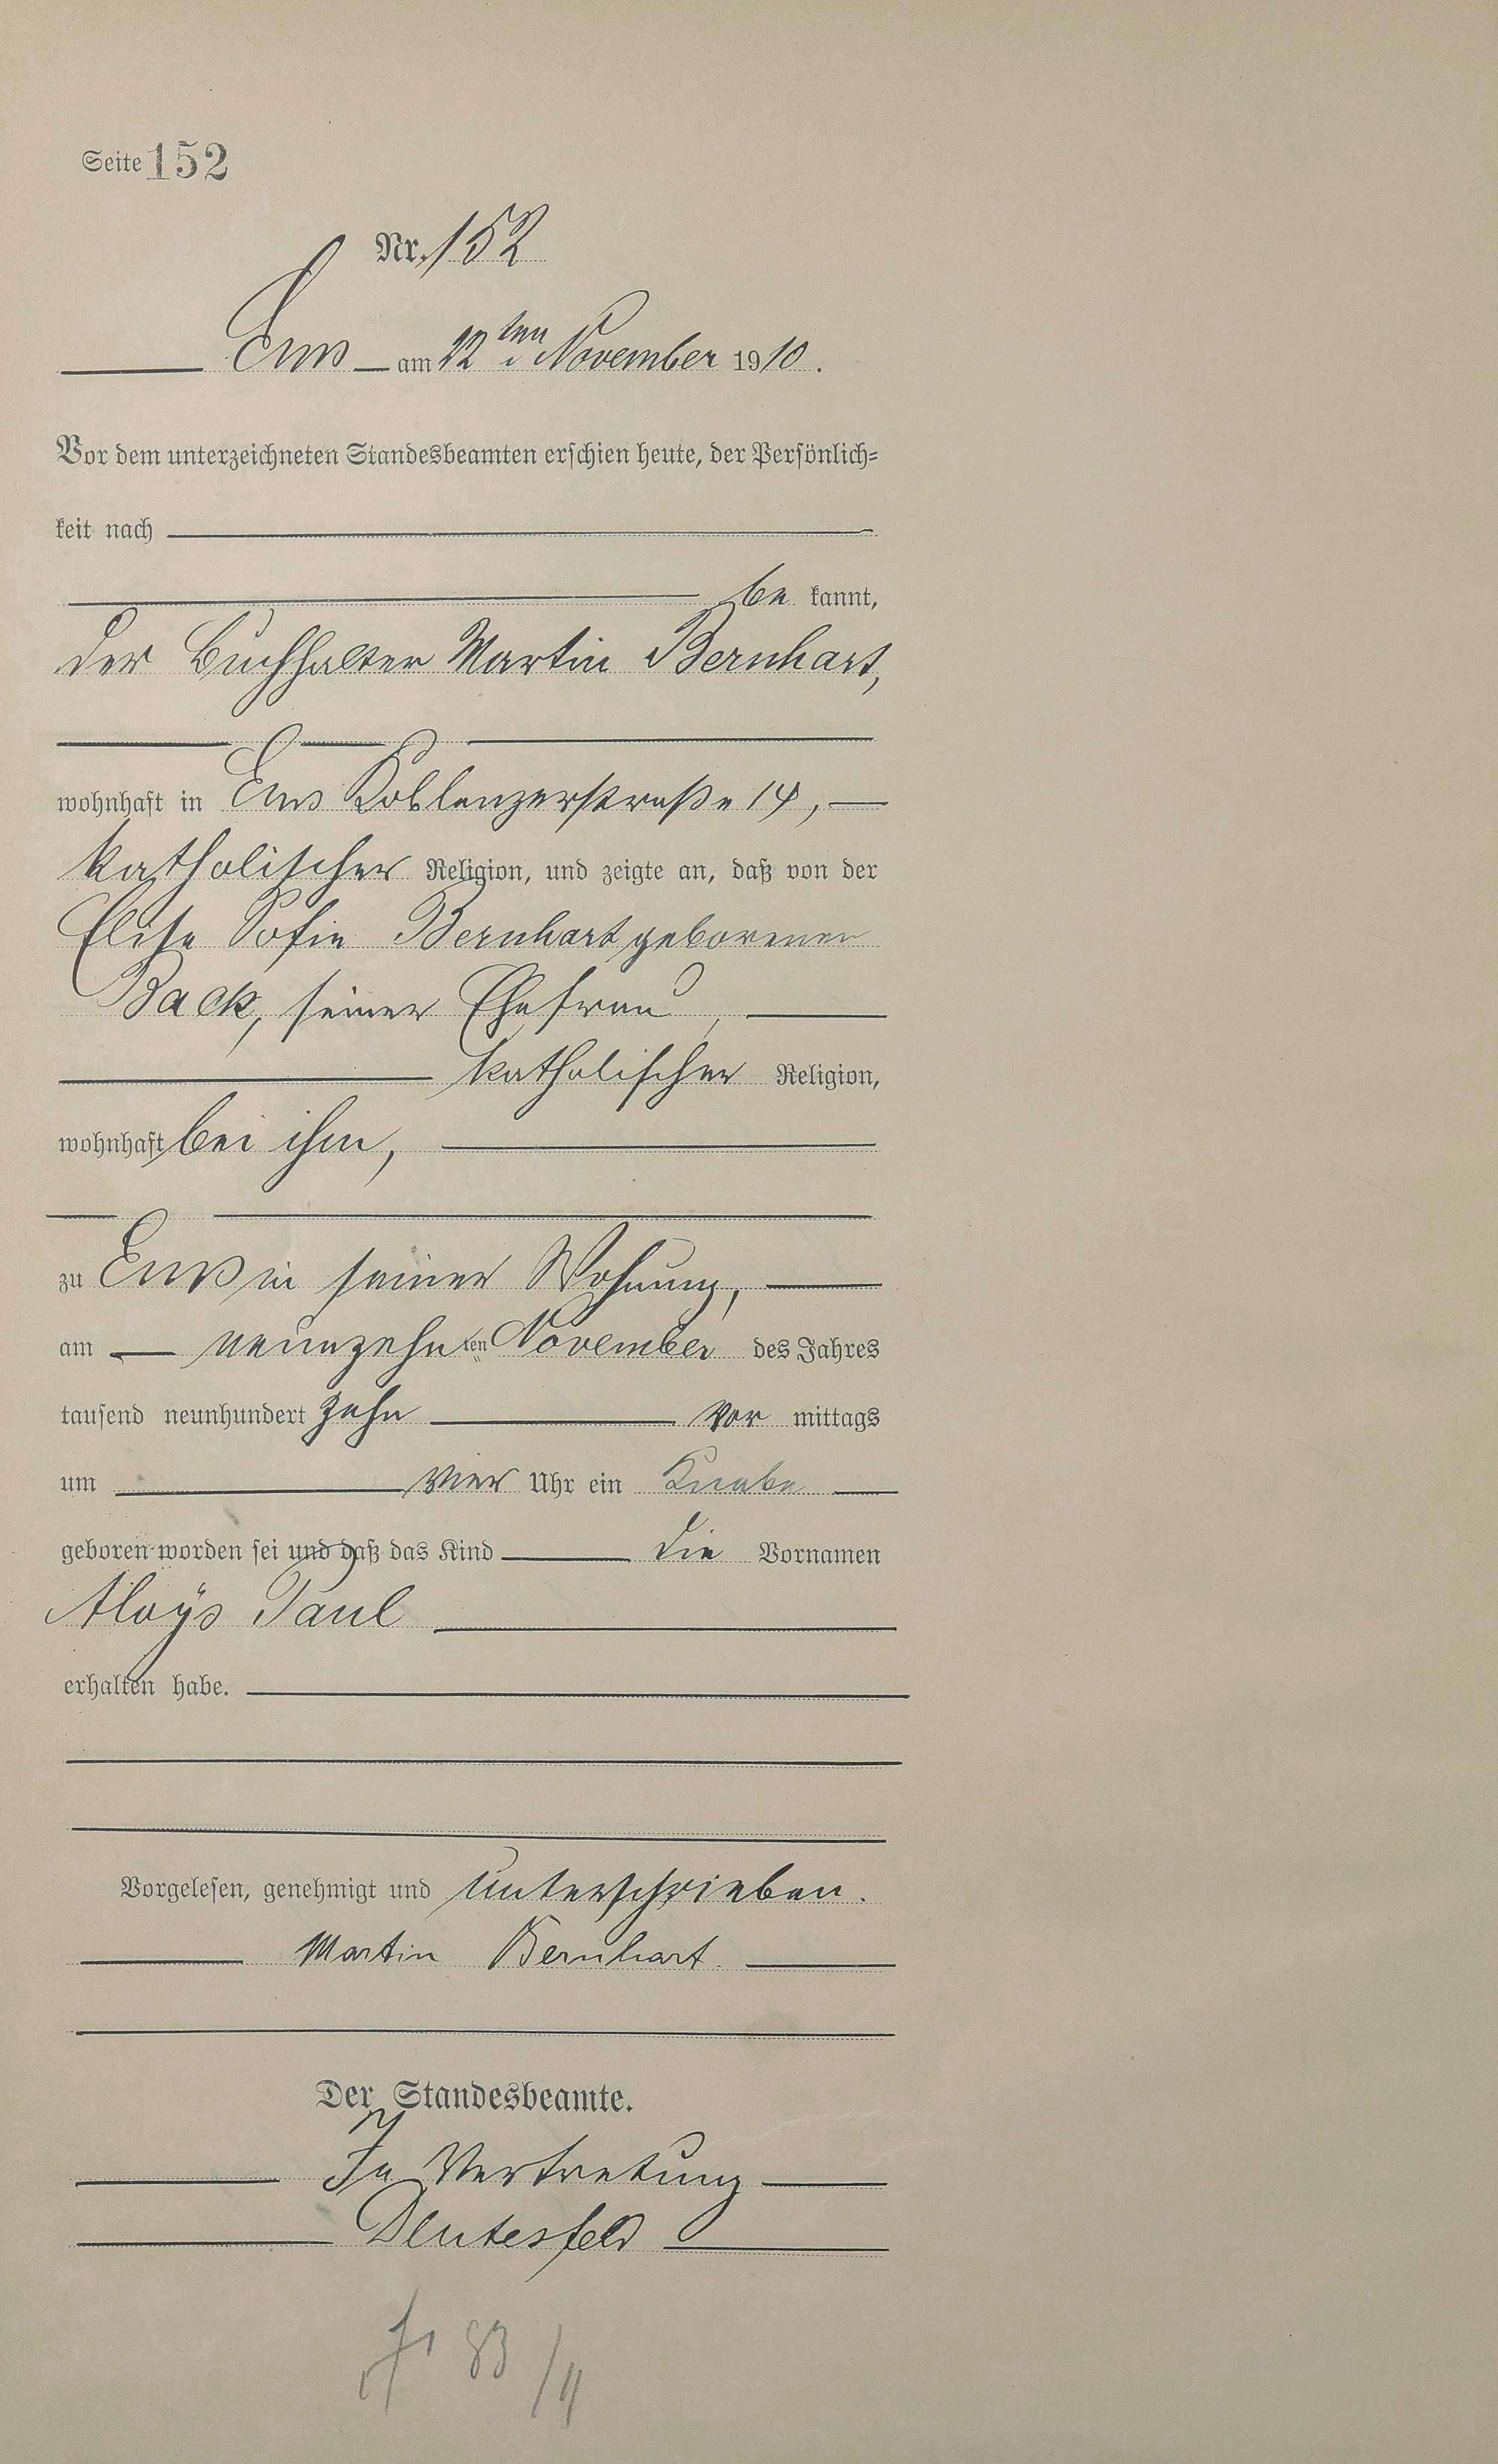 Seite 152
Nr. 152
Ems am 22ten November 1910.
Vor dem unterzeichneten Standesbeamten erschien heute, der Persönlich-
keit nach
be kannt,
der Buchhalter Martin Bernhart,
wohnhaft in Ems Koblenzerstraße 14,
katholischer Religion, und zeigte an, daß von der
Elise Sofie Bernhart geborenen
Back, seiner Ehefrau,
katholischer Religion,
wohnhaft bei ihm,
zu Ems in seiner Wohnung,
am neunzehnten November des Jahres
tausend neunhundert zehn vor mittags
um vier Uhr ein Knabe
geboren worden sei und daß das Kind die Vornamen
Aloÿs Paul
erhalten habe.
Vorgelesen, genehmigt und unterschrieben.
Martin Bernhart.
Der Standesbeamte.
In Vertretung
Deutesfeld
83/